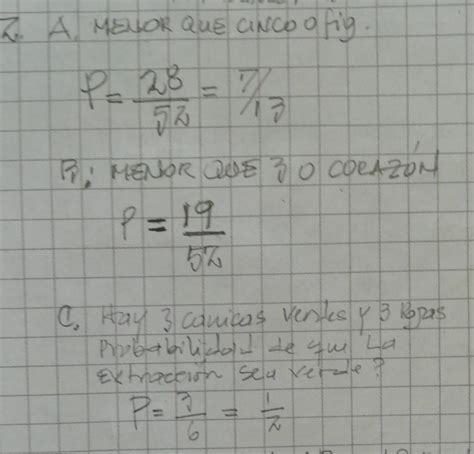 2. A. MENOR QUE CINCO O fig.
P = 28/52 = 7/13
B: MENOR QUE 3 O CORAZÓN
P = 19/52
C. Hay 3 canicas verdes y 3 Rojas
Probabilidad de que La
extraccion sea verde?
P = 3/6 = 1/2